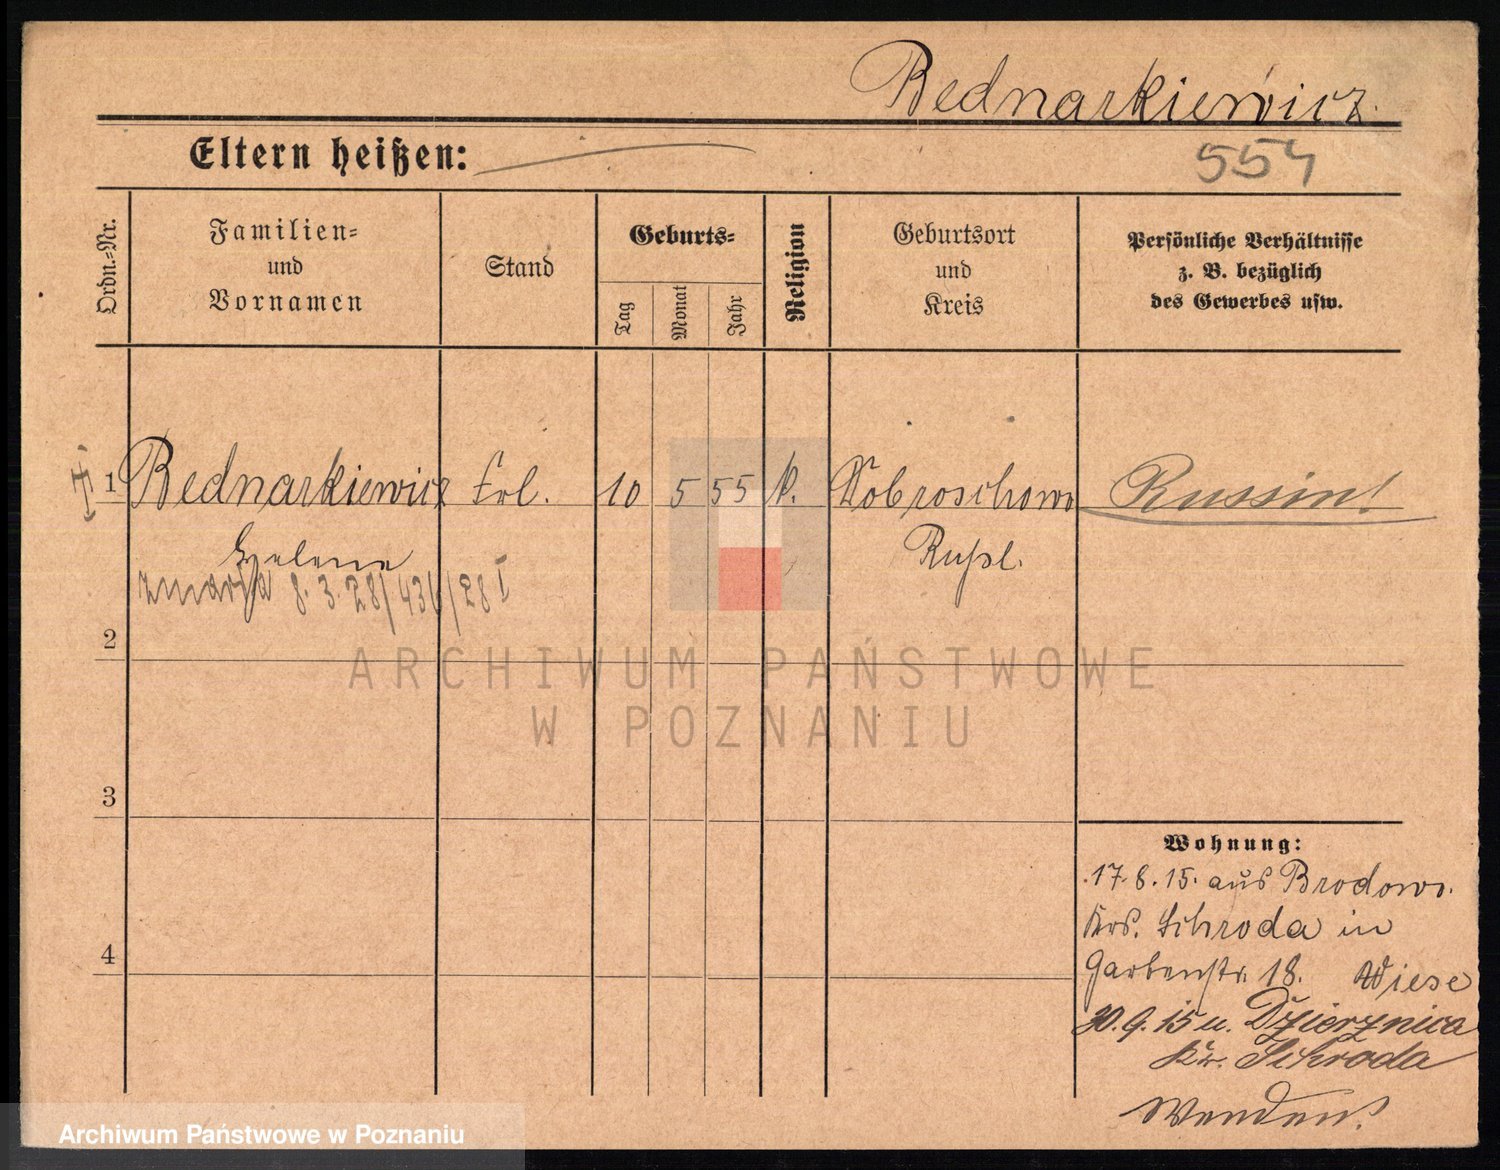 Bednarkiewicz.
Eltern heißen:
554
Ordn.-Nr.
Familien-
und
Vornamen
Stand
Geburts-
Tag
Monat
Jahr
Religion
Geburtsort
und
Kreis
Persönliche Verhältnisse
z. B. bezüglich
des Gewerbes usw.
1 Bednarkiewicz Frl. 10 5 55 k. Dobroschowo Russin!
Helene Rußl.
zmarła 8.3.28/436/28 I
2
3
4
ARCHIWUM PAŃSTWOWE
W POZNANIU
Wohnung:
17.8.15. aus Brodowo.
Krs. Schroda in
Gartenstr. 18. Wiese
30.9.15 n. Dzierznica
Kr. Schroda
Wenden!
Archiwum Państwowe w Poznaniu